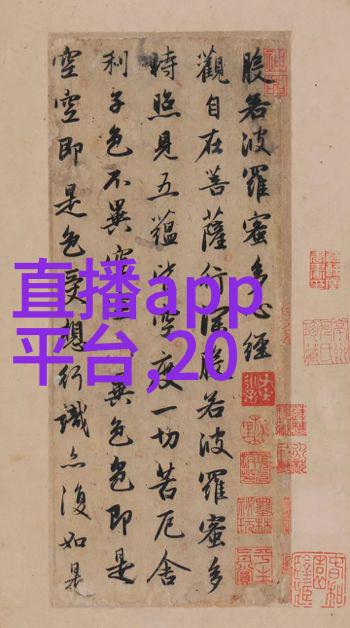 般若波羅蜜多心經
觀自在菩薩行深般若波羅蜜多
時照見五蘊皆空度一切苦厄舍
利子色不異空異色色即是
空空即是色受想行識亦復如是
直播app
平台,20